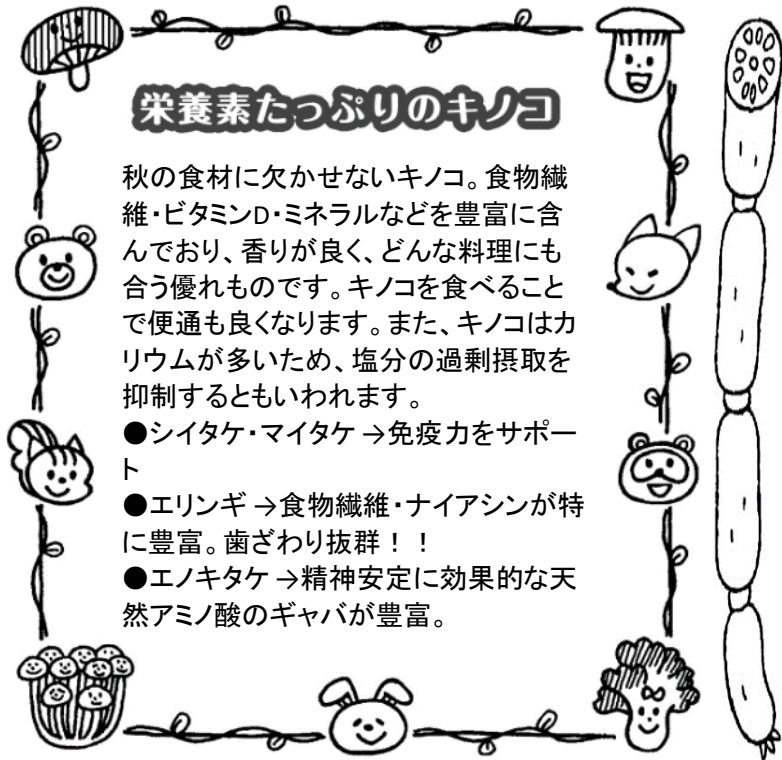 栄養素たっぷりのキノコ
秋の食材に欠かせないキノコ。食物繊
維・ビタミンD・ミネラルなどを豊富に含
んでおり、香りが良く、どんな料理にも
合う優れものです。キノコを食べること
で便通も良くなります。また、キノコはカ
リウムが多いため、塩分の過剰摂取を
抑制するともいわれます。
●シイタケ・マイタケ→免疫力をサポー
ト
●エリンギ→食物繊維・ナイアシンが特
に豊富。歯ざわり抜群！！
●エノキタケ→精神安定に効果的な天
然アミノ酸のギャバが豊富。